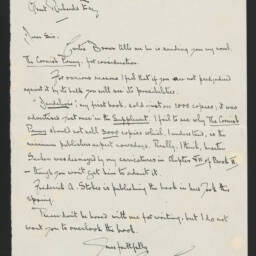 Grant Richards Esq.
Dear Sir:
Curtis Brown tells me he is sending you my novel
The Comic Penny, for consideration.
For various reasons I feel that if you are not prejudiced
against it by its bulk you will see its possibilities.
my first book, sold not 1000 copies; it was
advertised just once in the Supplement. I fail to see why The
should not sell 3000 copies which, I understand, is the
minimum publishers expect nowadays. Really, I think, Martin
Secker was annoyed by my caricatures in Chapter VII of Book II
- though you won't get him to admit it.
Frederick A. Stokes is publishing the book in New York this
spring.
Please don't be bored with me for writing, but I do not
want you to overlook the book.
Yours faithfully